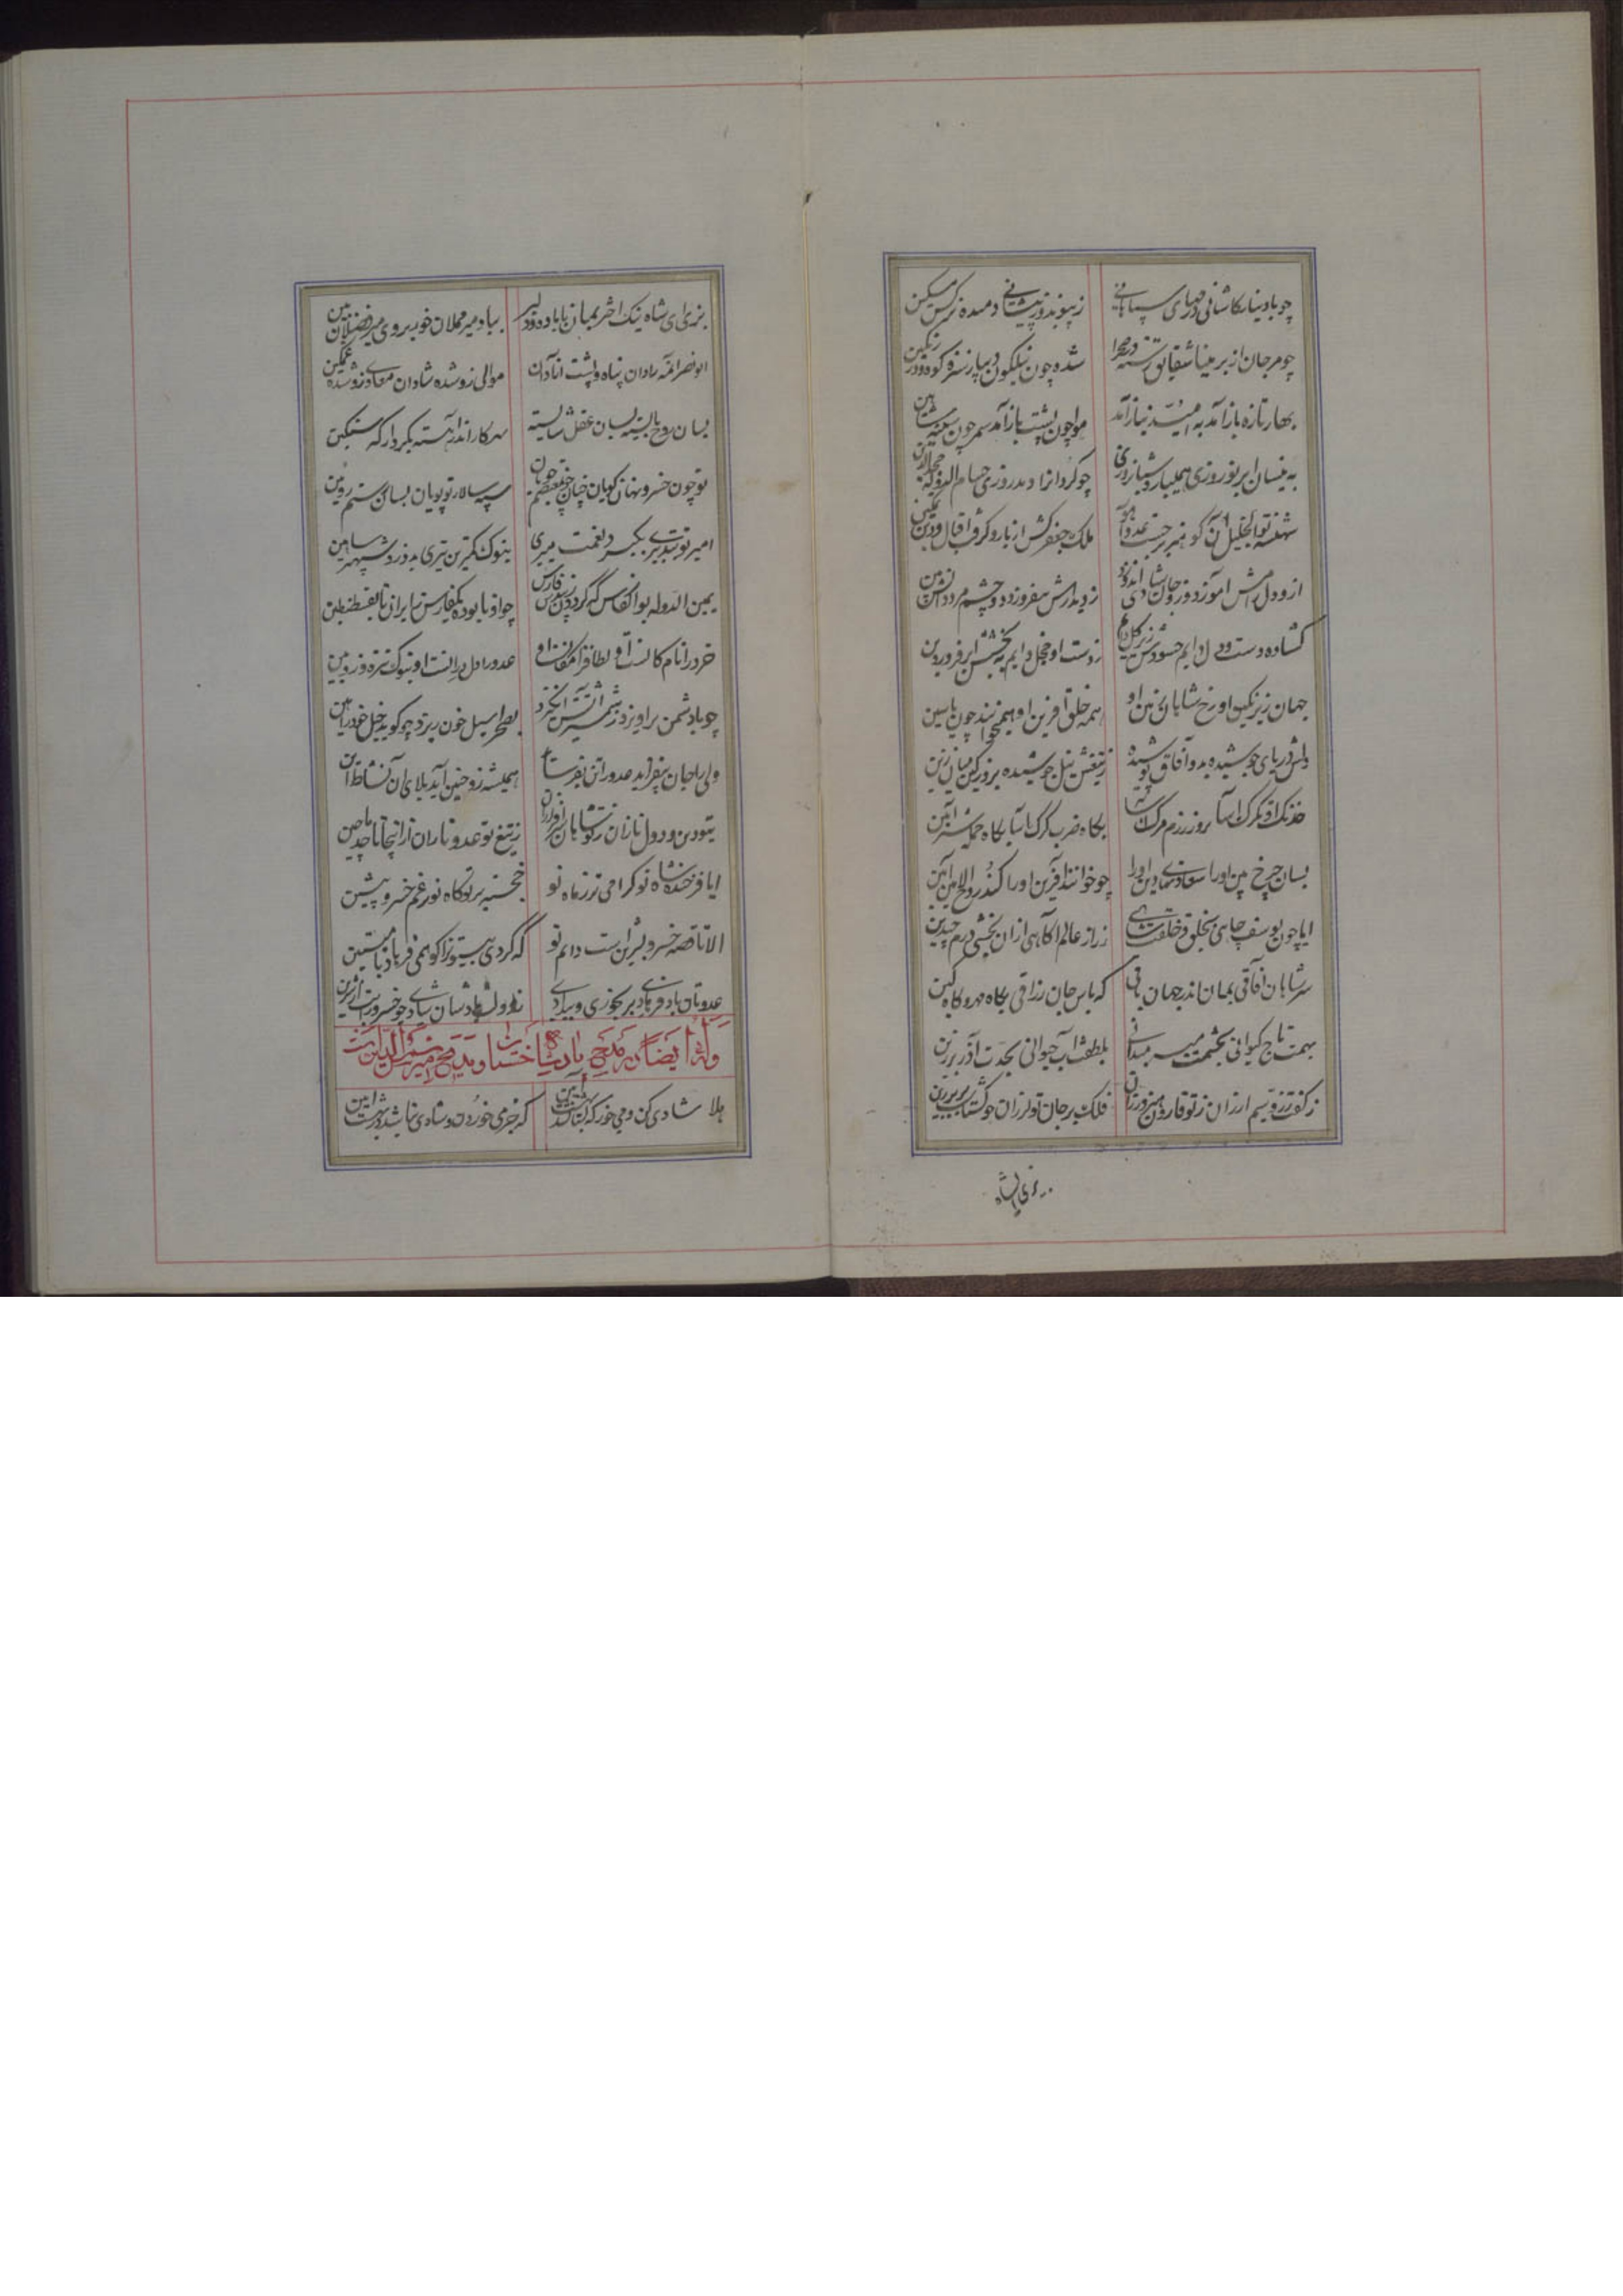 چو با دینار کاشانی درمهای سپاهانی ز پیوند زرپیشانی دمیده نرگس مسکین
چو مرجان از بر مینا شقایق رسته در صحرا شده چون نیلگون دیبا ز سبزه کوه و در رنگین
بهار تازه بازآمد به امید نیاز آمد هوا چون پشت باز آمد سمر چون سینه شاهین
به نیسان ابر نوروزی همی بارد شباروزی چو کردار خداوند روزی حسام الدوله
شهنشه بوالخلیل آن کو ملک جعفر کش از بازو گرفت اقبال و دین تمکین
ازو دل رامش آموزد وزو جان شادی اندوزد ز دیدارش بیفروزد دو چشم مردم
گشاده دست و دل دایم حسودش زیر گل دایم ز دست او خجل دایم به بخشش ابر فروردین
جهان زیر نگین او رخ شاهان زمین او همه خلق آفرین او همیخوانند چون یاسین
دلش دریای جوشیده بدو آفاق پوشیده ز تیغش نیل جوشیده بروز کین میان زین
خدنگ او بمرگ آسا بروز رزم مرگ آسا بگاه ضرب گرگ آسا بگاه حمله شیر آیین
بسان چرخ بین او را سعادت همنشین او را چو خوانند آفرین او را کند روح الامین آمین
ایا چون یوسف چاهی بخلق و خلقت شاهی ز راز عالم آگاهی ازان بخشی درم چندین
سر شاهان آفاقی بمان اندر جهان باقی که باس جان رزاقی بگاه مهر و گاه کین
بهمت تاج کیوانی بحشمت میر میدانی بلطف آب حیوانی بحدت آذر برزین
ز کفت زر و سیم ارزان ز تو قارون هنرورزان فلک بر جان تو لرزان چو گشتاسب بر برزین
بزی ای شاه
بزی ای شاه نیک اختر بمان با باده و دلبر بیاد میر مملان خور بروی میر فضلان بین
ابونصر آنمه رادان پناه و پشت آزادان موالی زو شده شادان معادی زو شده غمگین
بسان روح بایسته بسان عقل شایسته بهر کار اندر آهسته بکردار که سنگین
تو چون خسرو نهان گویان سپه سالار تو پویان بسان رستم رویین
امیر تو بتدبیری بگیرد نعمت میری بنوک کمترین تیری بدوزد شهپر شاهین
یمین الدوله بوالفارس که گردون زیبدش فارس چو او نابوده یک فارس ز ایران تا بقسطنطین
خرد را نام کانست او لطافت را مکانست او عدو را دل برانست او بنوک نیزه و زوبین
چو با دشمن براویزد ز شمشیرش آتش انگیزد بصحرا سیل خون ریزد چو گوید خیل خود را هین
ولی را جان بیفزاید عدو را تن بفرساید همیشه زو چنین آید بلای آن نشاط این
بتو دین و دول نازان ز تو شاهان سرافرازان ز تیغ تو عدو تازان ازاینجا تا بماچین
ایا فرخنده شاه نو گرامی تر ز ماه نو خجسته بر تو گاه نو رغم خسرو پیشین
الا تا قصه خسرو بشیرین است دایم نو که کردی بیستون را گو همی فرهاد با میتین
عدوتان باد فرهادی برنجوری و بیدادی ز دولت بادشان شادی چو خسرو با بت شیرین
وله ایضا در مدح پادشاه خسان و مدح امیر شمس الدین است
هلا شادی کن و می خور که جز می خوردن و شادی نباشد در بهشت آیین